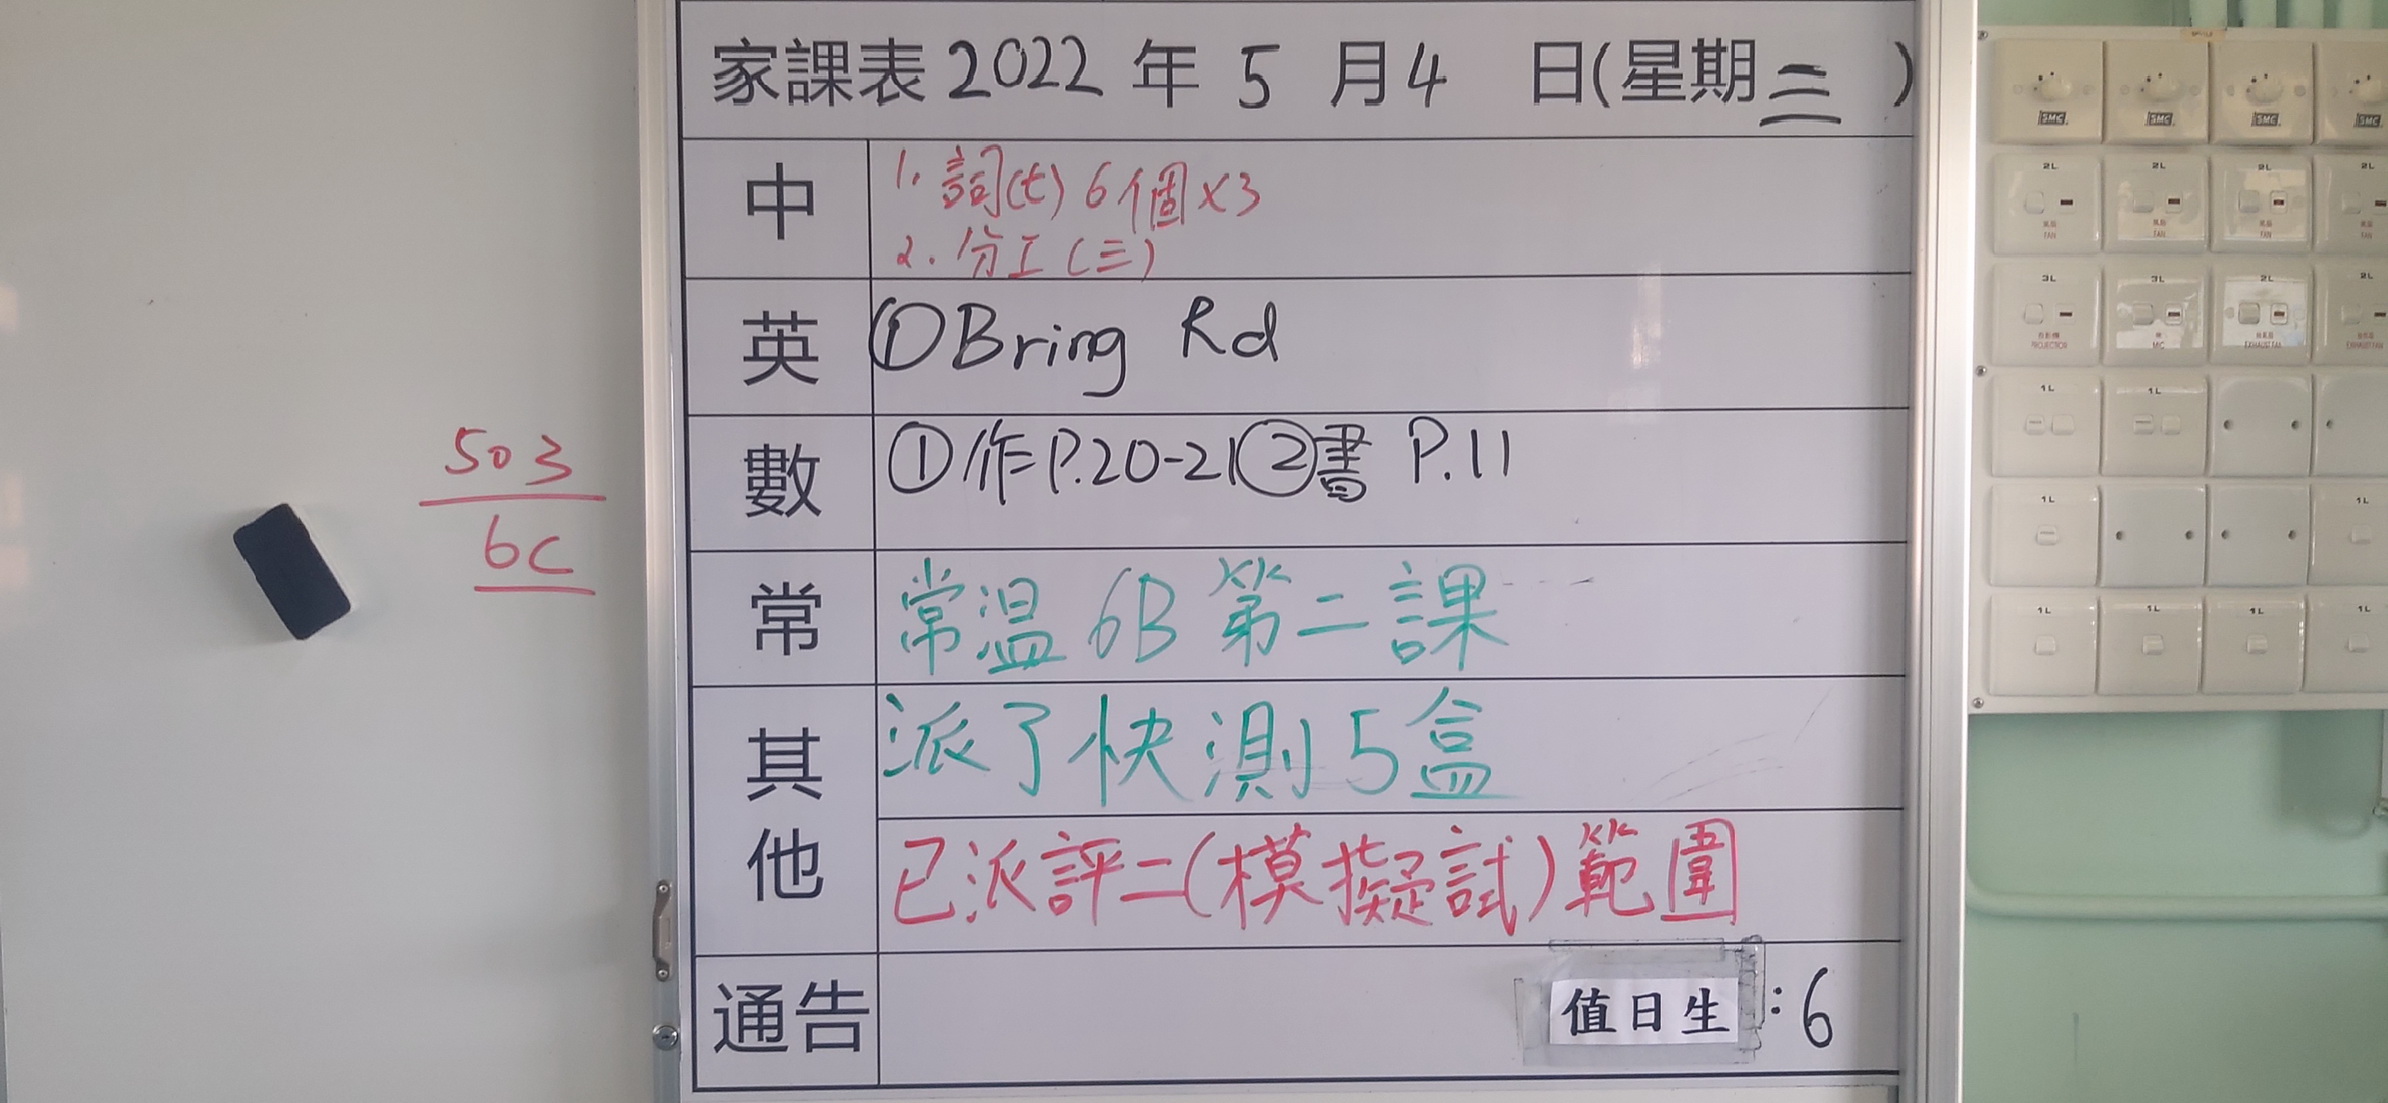 家課表2022年5月4日(星期三)
中
1. 詞(七) 6個×3
2. 分工(三)
英
①Bring Rd
數
①作P.20-21②書 P.11
常
常温 6B 第二課
其他
派了快測5盒
已派評二(模擬試)範圍
通告
值日生:6
503
6C
SMC SMC SMC SMC
2L 2L 2L 2L
FAN FAN FAN FAN
3L 3L 2L 2L
PROJECTOR MIC EXHAUST FAN EXHAUST FAN
1L 1L
1L 1L
1L 1L 1L 1L